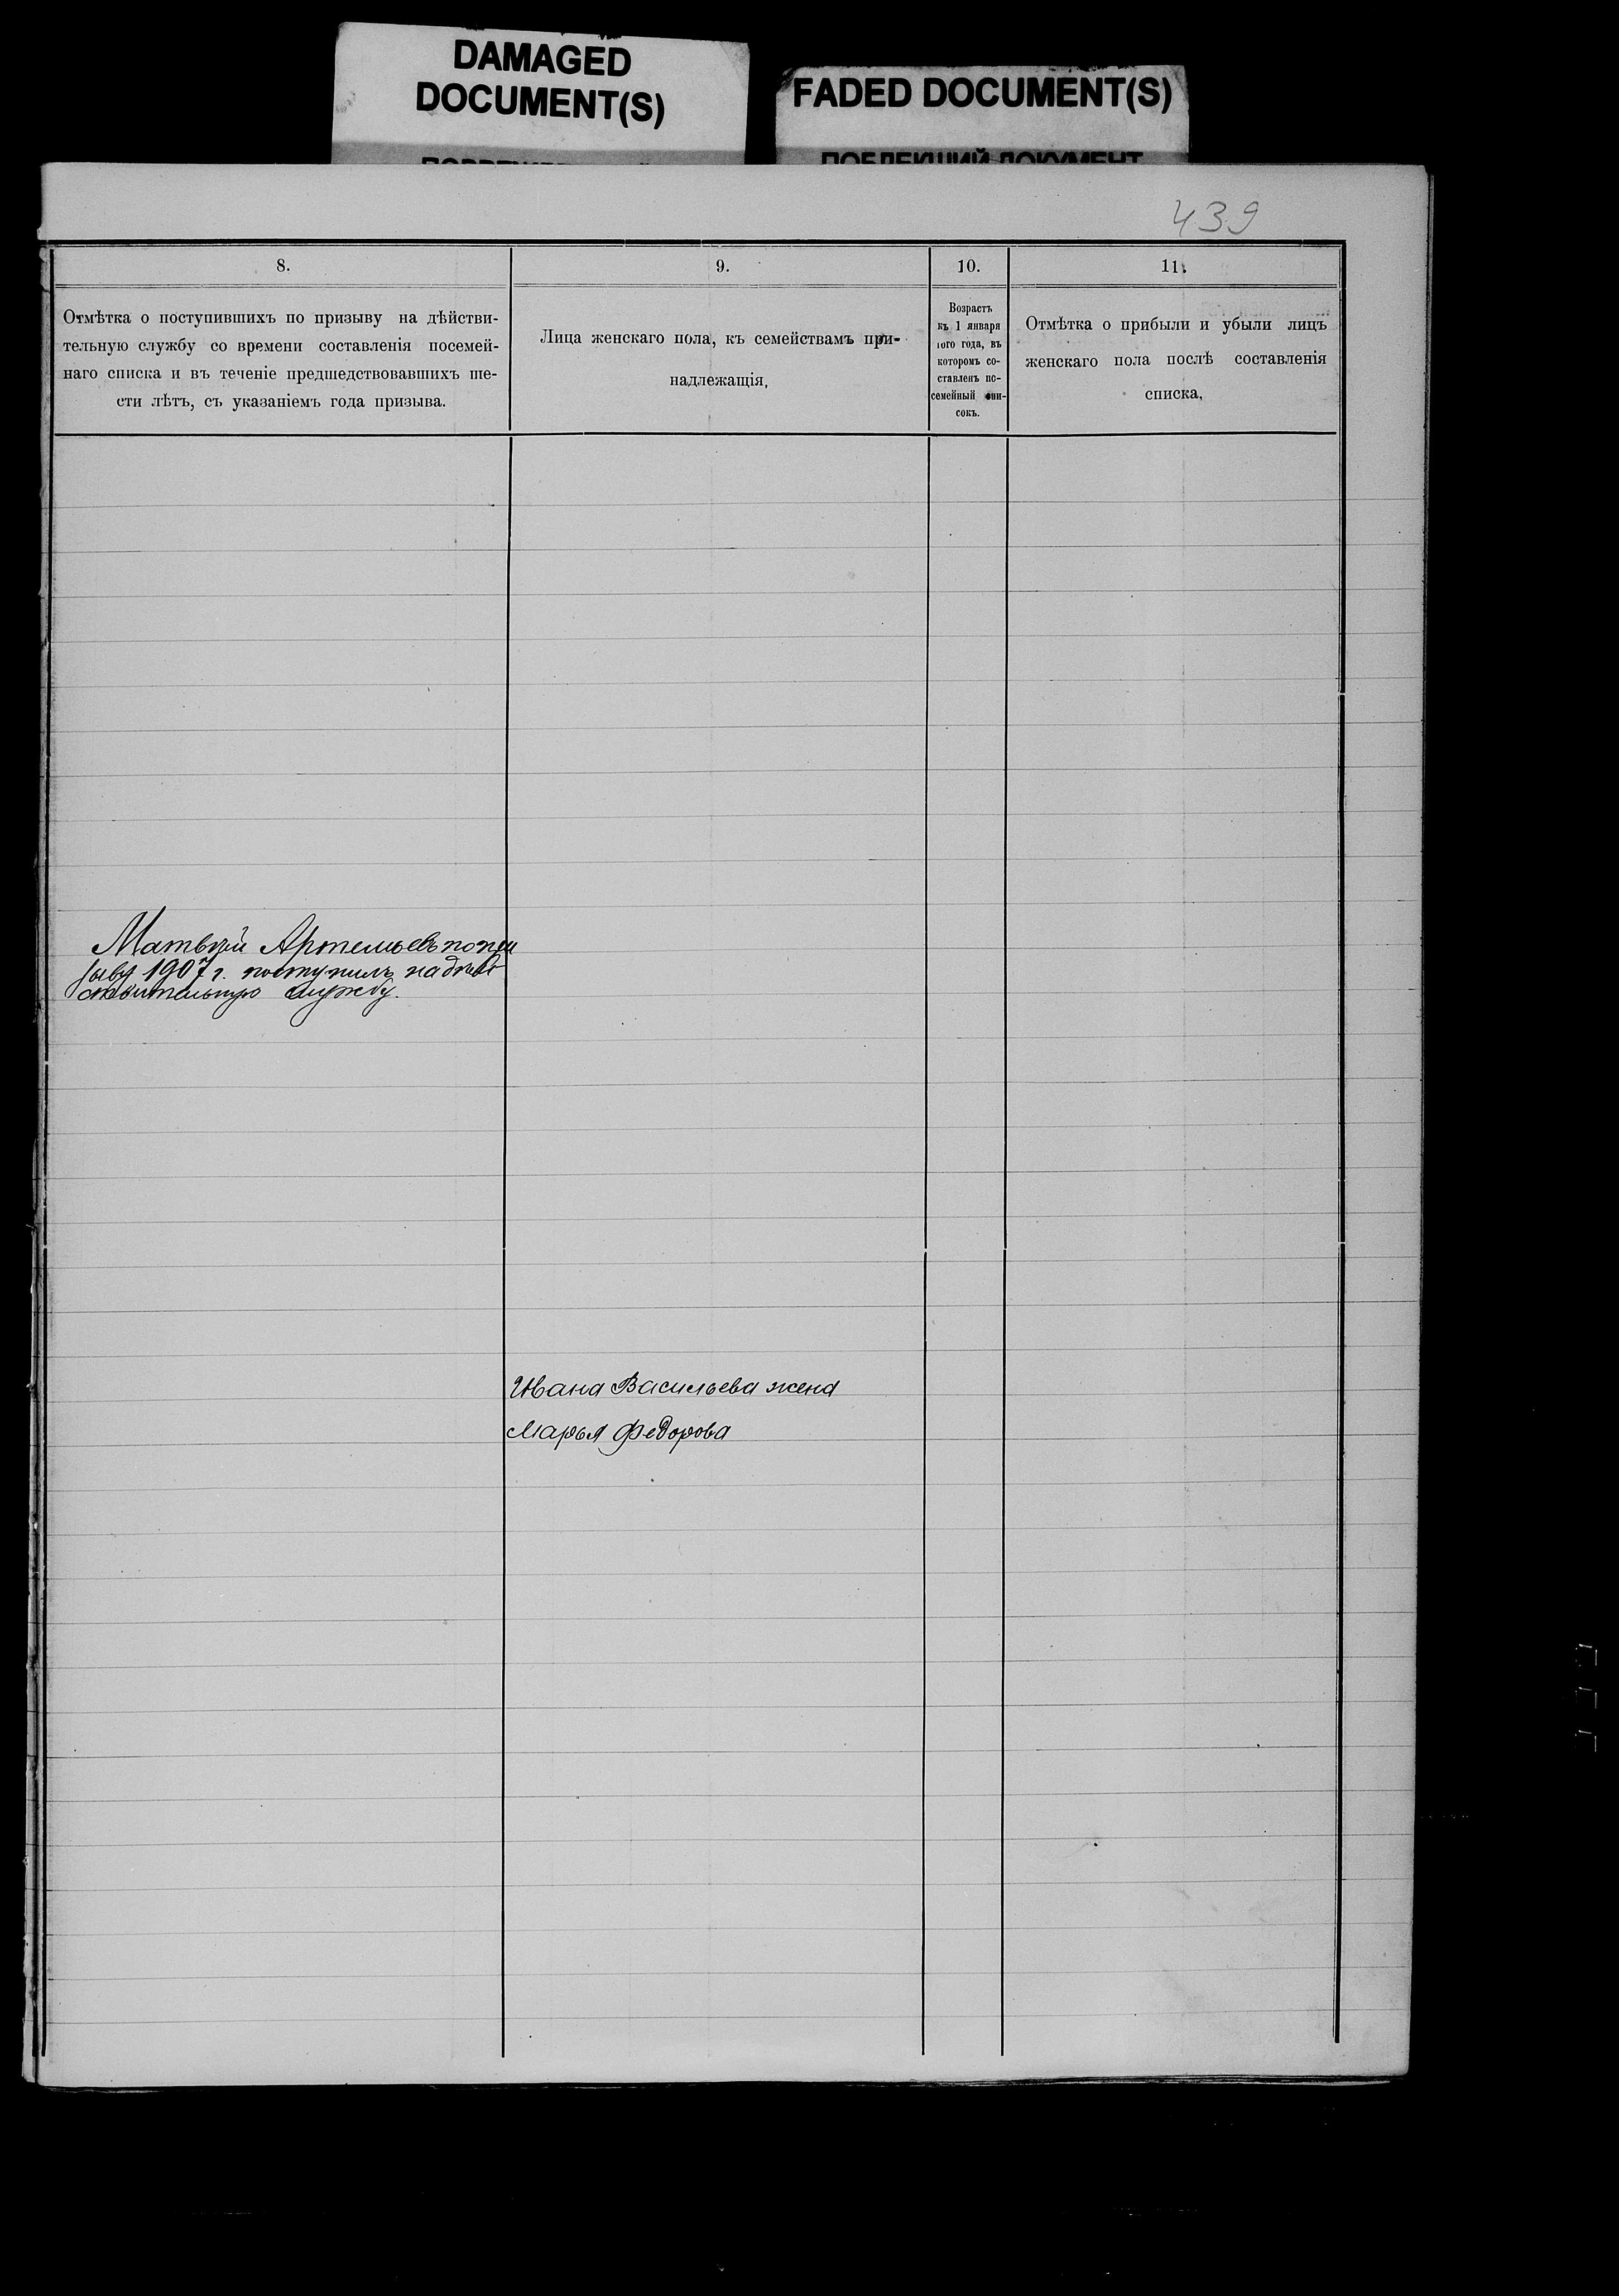 DAMAGED
DOCUMENT(S)
FADED DOCUMENT(S)
ПОБЛЕКШИЙ ДОКУМЕНТ
439
8.
Отмѣтка о поступившихъ по призыву на дѣйстви-
тельную службу со времени составленія посемей-
наго списка и въ теченіе предшедствовавшихъ ше-
сти лѣтъ, съ указаніемъ года призыва.
9.
Лица женскаго пола, къ семействамъ при-
надлежащія,
10.
Возрастъ
къ 1 января
того года, въ
которомъ со-
ставленъ по-
семейный спи-
сокъ.
11.
Отмѣтка о прибыли и убыли лицъ
женскаго пола послѣ составленія
списка,
Матвѣй Артемьевъ по при
зыву 1907 г. поступилъ на дѣй
ствительную службу.
Ивана Васильева жена
Марья Федорова